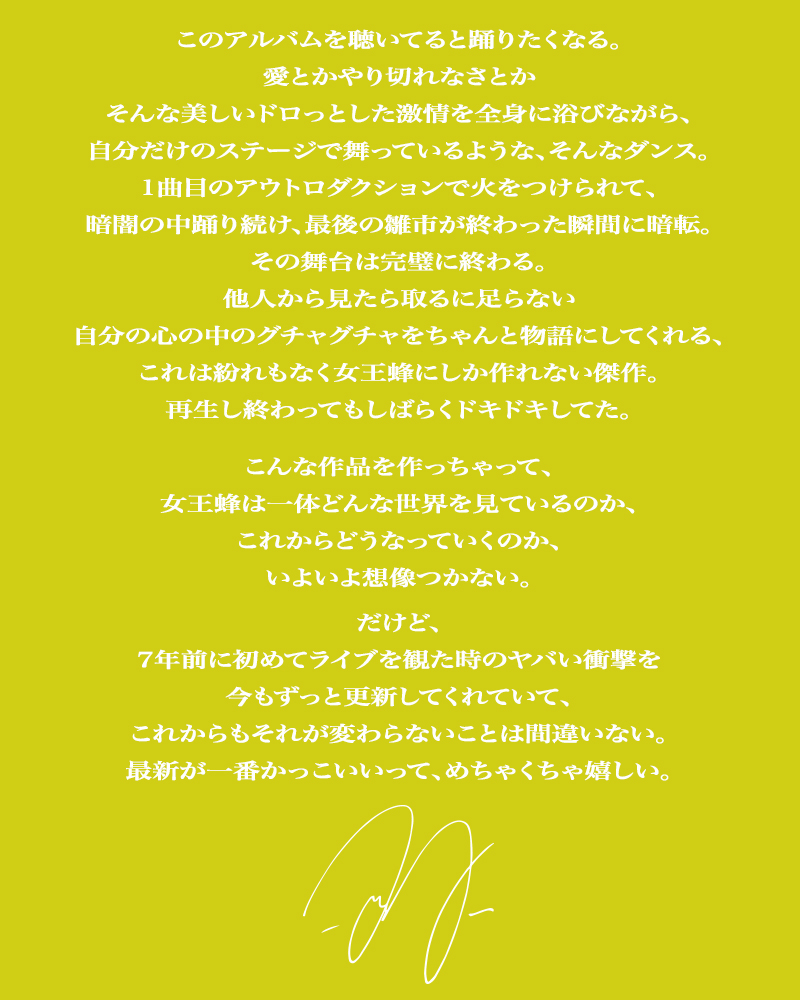 このアルバムを聴いてると踊りたくなる。
愛とかやり切れなさとか
そんな美しいドロっとした激情を全身に浴びながら、
自分だけのステージで舞っているような、そんなダンス。
1曲目のアウトロダクションで火をつけられて、
暗闇の中踊り続け、最後の雛市が終わった瞬間に暗転。
その舞台は完璧に終わる。
他人から見たら取るに足らない
自分の心の中のグチャグチャをちゃんと物語にしてくれる、
これは紛れもなく女王蜂にしか作れない傑作。
再生し終わってもしばらくドキドキしてた。
こんな作品を作っちゃって、
女王蜂は一体どんな世界を見ているのか、
これからどうなっていくのか、
いよいよ想像つかない。
だけど、
7年前に初めてライブを観た時のヤバい衝撃を
今もずっと更新してくれていて、
これからもそれが変わらないことは間違いない。
最新が一番かっこいいって、めちゃくちゃ嬉しい。